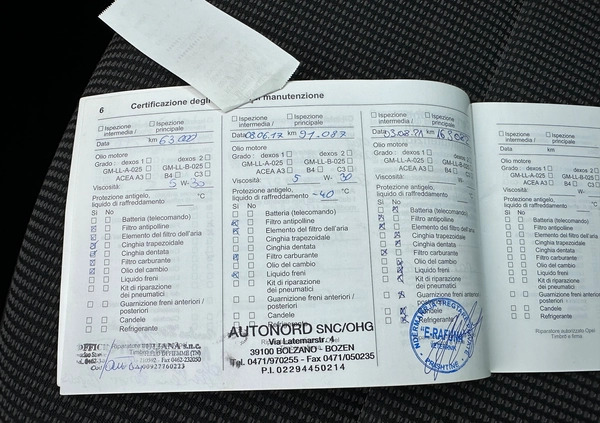 6
Certificazione degli
manutenzione
Ispezione intermedia /
Ispezione principale
Data km 63.000
Olio motore
Grado: dexos 1 dexos 2
GM-LL-A-025 GM-LL-B-025
ACEA A3 B4 C3
Viscosità: 5 W- 30
Protezione antigelo,
liquido di raffreddamento °C
Sì No
Batteria (telecomando)
Filtro antipolline
Elemento del filtro dell'aria
Cinghia trapezoidale
Cinghia dentata
Filtro carburante
Olio del cambio
Liquido freni
Kit di riparazione
dei pneumatici
Guarnizione freni anteriori /
posteriori
Candele
Refrigerante
Ispezione intermedia /
Ispezione principale
Data 08.06.17 km 91.087
Olio motore
Grado: dexos 1 dexos 2
GM-LL-A-025 GM-LL-B-025
ACEA A3 B4 C3
Viscosità: 5 W- 30
Protezione antigelo,
liquido di raffreddamento -40 °C
Sì No
Batteria (telecomando)
Filtro antipolline
Elemento del filtro dell'aria
Cinghia trapezoidale
Cinghia dentata
Filtro carburante
Olio del cambio
Liquido freni
Kit di riparazione
dei pneumatici
Guarnizione freni anteriori /
posteriori
Candele
AUTONORD SNC/OHG
Via Latemarstr. 4
39100 BOLZANO - BOZEN
Tel. 0471/970255 - Fax 0471/050235
P.I. 02294450214
Ispezione intermedia /
Ispezione principale
Data 03.08.21 km
Olio motore
Grado: dexos 1 dexos 2
GM-LL-A-025 GM-LL-B-025
ACEA A3 B4 C3
Viscosità: W-
Protezione antigelo,
liquido di raffreddamento °C
Sì No
Batteria (telecomando)
Filtro antipolline
Elemento del filtro dell'aria
Cinghia trapezoidale
Cinghia dentata
Filtro carburante
Olio del cambio
Liquido freni
Kit di riparazione
dei pneumatici
Guarnizione freni anteriori /
posteriori
Candele
Refrigerante
"E-RAFUNA"
PRISHTINË
Ispezione intermedia /
Ispezione principale
Data km
Olio motore
Grado: dexos 1
GM-LL-A-025
ACEA A3 B4
Viscosità:
Protezione antigelo,
liquido di raffreddamento
Sì No
Batteria (telecomando)
Filtro antipolline
Elemento del filtro dell'aria
Cinghia trapezoidale
Cinghia dentata
Filtro carburante
Olio del cambio
Liquido freni
Kit di riparazione
dei pneumatici
Guarnizione freni anteriori /
posteriori
Candele
Refrigerante
Riparatore autorizzato Opel
Timbro e firma